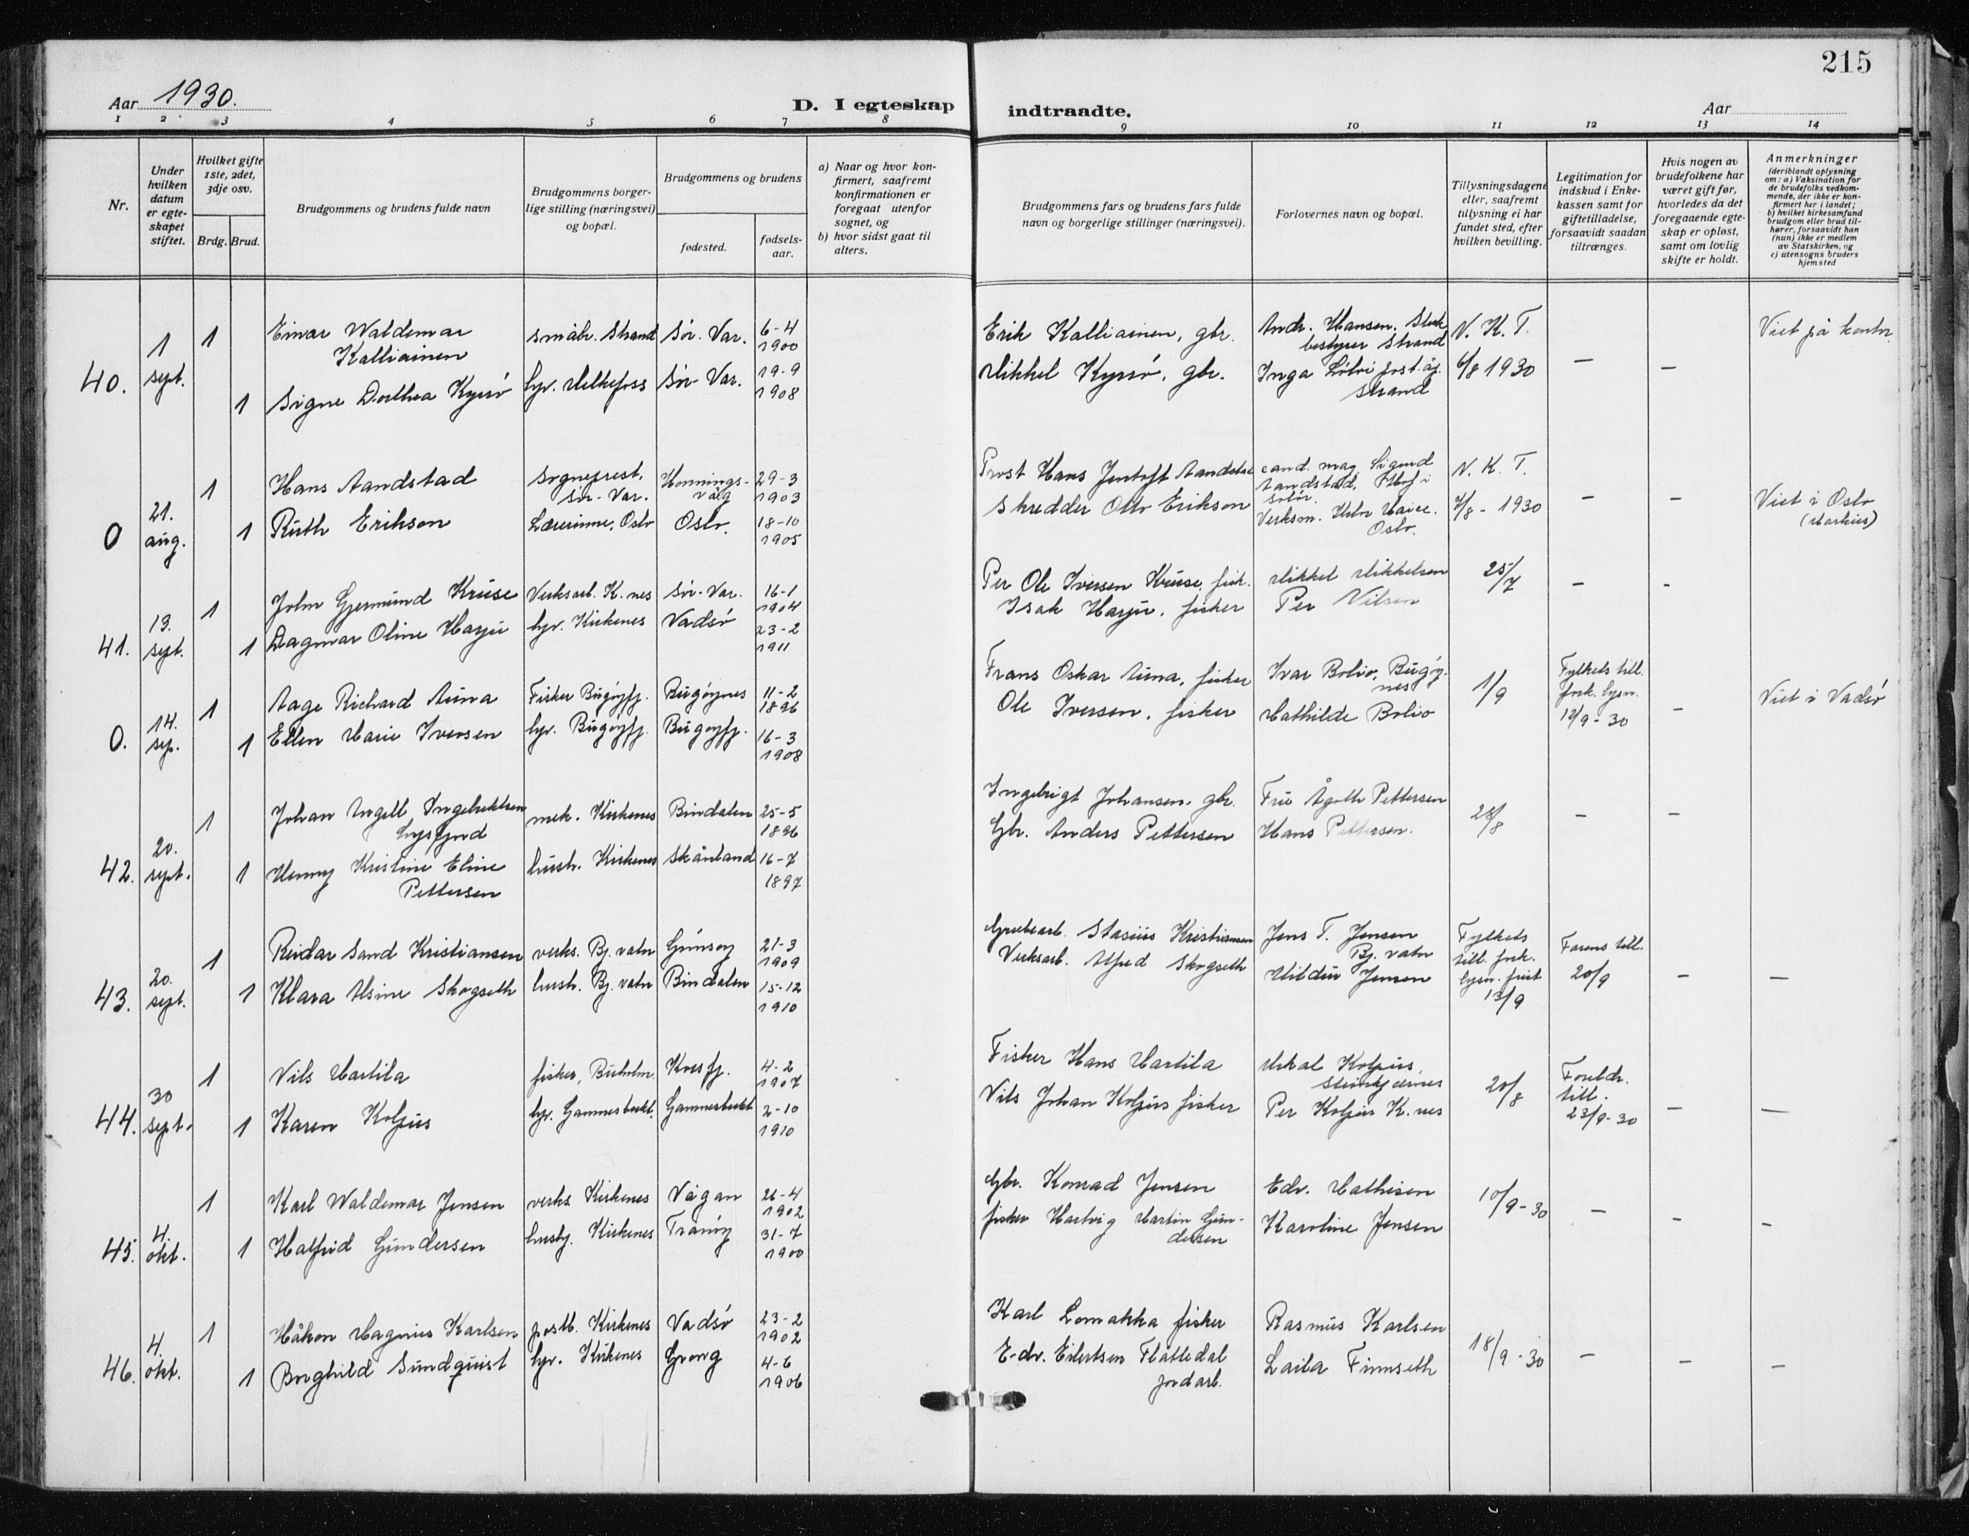 215
Aar 1930.
D. I egteskap indtraadte.
Aar
1 2 3 4 5 6 7 8 9 10 11 12 13 14
Nr.
Under hvilken datum er egteskapet stiftet.
Hvilket gifte 1ste, 2det, 3dje osv.
Brdg. Brud.
Brudgommens og brudens fulde navn
Brudgommens borgerlige stilling (næringsvei) og bopæl.
Brudgommens og brudens
fødested.
fødselsaar.
a) Naar og hvor konfirmert, saafremt konfirmationen er foregaat utenfor sognet, og
b) hvor sidst gaat til alters.
Brudgommens fars og brudens fars fulde navn og borgerlige stillinger (næringsvei).
Forlovernes navn og bopæl.
Tillysningsdagene eller, saafremt tillysning ei har fundet sted, efter hvilken bevilling.
Legitimation for indskud i Enkekassen samt for giftetilladelse, forsaavidt saadan tiltrænges.
Hvis nogen av brudefolkene har været gift før, hvorledes da det foregaaende egteskap er opløst, samt om lovlig skifte er holdt.
Anmerkninger (deriblandt oplysning om: a) Vaksination for de brudefolks vedkommende, der ikke er konfirmert her i landet; b) hvilket kirkesamfund brudgom eller brud tilhører, forsaavidt han (hun) ikke er medlem av Statskirken, og c) utensogns bruders hjemsted
40. 1 sept. 1 Einar Waldemar Kalliainen småbr. Strand Sør-Var. 6-4 1900 Erik Kalliainen, gbr. Andr. Hansen, bestyrer Strand N. K. T. 6/8 1930 — — Viet på kontor.
1 Signe Dorthea Kyrø hyr. Melkefoss Sør-Var. 19-9 1908 Mikkel Kyrø, gbr. Inga Strand
0 21. aug. 1 Hans Aandstad Sogneprest, Sør-Var. Honningsvåg 29-3 1903 Prost Hans Jentoft Aandstad cand. mag. Sigurd Aandstad, N. K. T. 7/8 - 1930 - - Viet i Oslo (Markus)
1 Ruth Erikson Lærerinne, Oslo Oslo. 18-10 1905 Skredder Otto Erikson Oslo.
41. 13. sept. 1 John Gjermund Kruse Verksarb. K.nes Sør-Var. 16-1 1904 Per Ole Iversen Kruse, fisk. Mikkel Mikkelsen 25/7 - -
1 Dagmar Oline Harju hyr. Kirkenes Vadsø 23-2 1911 Isak Harju, fisker Per Nilsen
0. 14. sep. 1 Aage Richard Auna Fisker Bugøyfj. Bugøynes 11-2 1896 Frans Oskar Auna, fisker Ivar Bolio, Bugøynes 1/9 Fylkets till. fork. lysn. 12/9-30 - Viet i Vadsø
1 Ellen Marie Iversen hyr. Bugøyfj. Bugøyfj. 16-3 1908 Ole Iversen, fisker Mathilde Bolio
42. 20. sept. 1 Johan Angell Ingebriktsen Lysfjord mek. Kirkenes Bindalen 25-5 1896 Ingebrigt Johansen, gbr. Fru Ågoth Pettersen 28/8 - -
1 Henny Kristine Eline Pettersen hush. Kirkenes Skånland 16-7 1897 Gbr. Anders Pettersen Hans Pettersen.
43. 20. sept. 1 Reidar Sand Kristiansen verks. Bj. vatn Gimsøy 21-3 1909 Grubearb. Stasius Kristiansen Jens T. Jensen Bj. vatn Fylkets till. fork. lysn. frist 13/9 Farens till. 20/9 - —
1 Klara Alsine Skogseth hush. Bj. vatn Bindalen 15-12 1910 Verksarb. Alfred Skogseth Mildur Jensen
44. 30 sept. 1 Nils Martila fisker, Buholm. Korsfj. 4-2 1907 Fisker Hans Martila Mikal Kolpus, 20/8 Foreldr. till. 23/9-30 - —
1 Karen Kolpus hyr. Gammesbukt. Gammesbukt 2-10 1910 Nils Johan Kolpus fisker Per Kolpus K.nes
45. 4. okt. 1 Karl Waldemar Jensen verks Kirkenes Vågan 26-4 1902 Gbr. Konrad Jensen Edv. Mathisen 10/9-30 - - -
1 Halfrid Gundersen husbj. Kirkenes Tranøy 31-7 1900 fisker Hartvig Martin Gundersen Karoline Jensen
46. 4. okt. 1 Håkon Magnus Karlsen postb. Kirkenes Vadsø 23-2 1902 Karl Lomakka fisker Rasmus Karlsen 18/9-30 - - -
1 Borghild Sundquist hyr. Kirkenes Grong 4-6 1906 Edv. Eilertsen Flattedal jordarb. Laila Finnseth